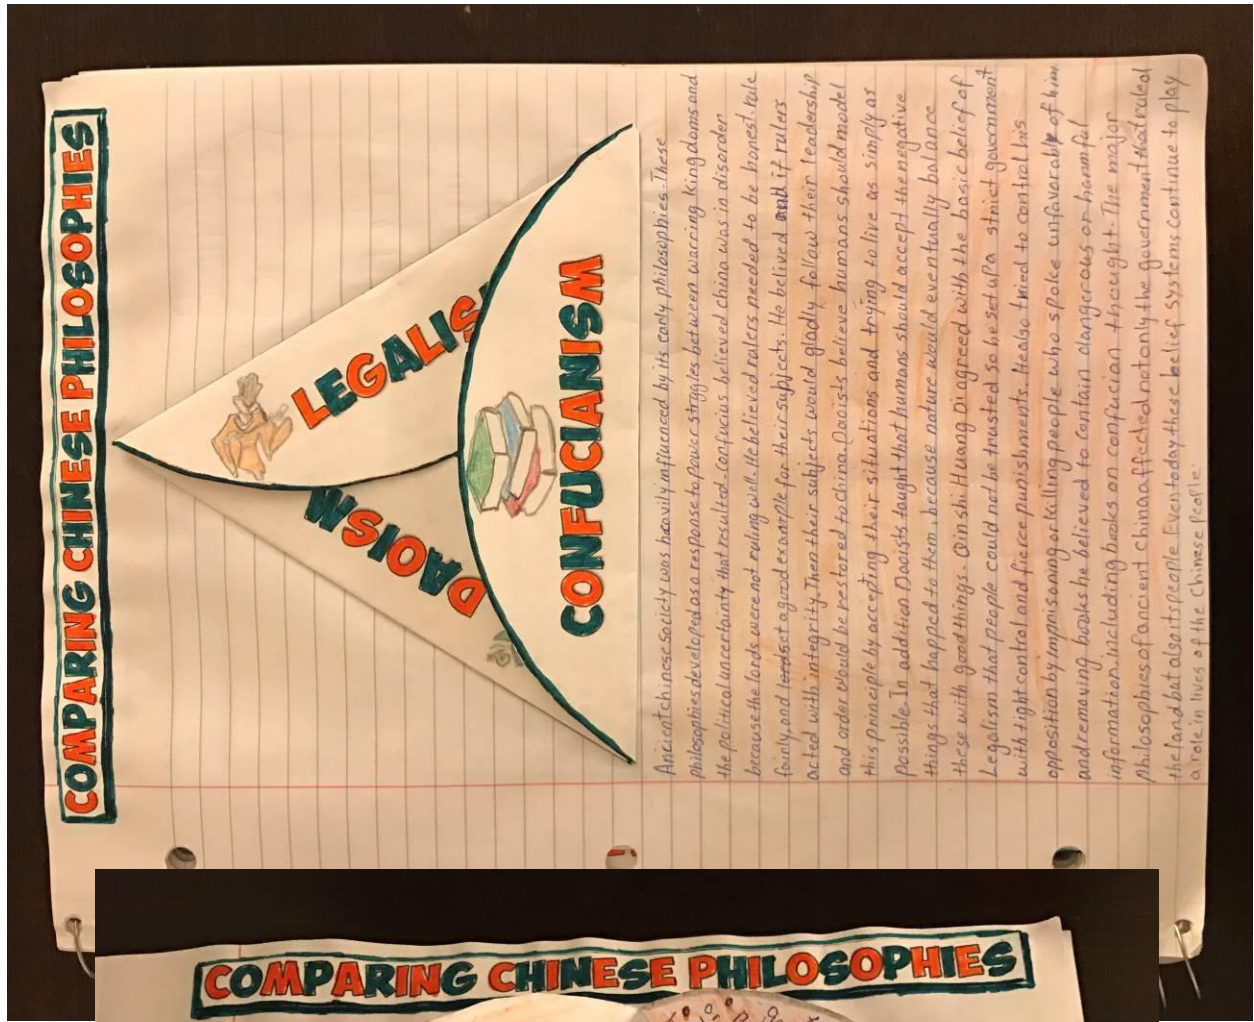 COMPARING CHINESE PHILOSOPHIES
LEGALIS
DAOISM
CONFUCIANISM
Ancient chinese society was heavily influenced by its early philosophies. These
philosophies developed as a response to power strggles between warring kingdoms and
the political uncertainty that resulted. Confucius believed china was in disorder
because the lords were not ruling well. He believed rulers needed to be honest, rule
fairly, and set a good example for their subjects. He belived if rulers
acted with integrity, Then their subjects would gladly follow their leadership
and order would be restored to china. Daoists believe humans should model
this principle by accepting their situations and trying to live as simply as
possible. In addition Daoists taught that humans should accept the negative
things that happed to them, because nature would eventually balance
these with good things. Qin shi Huang Di agreed with the basic belief of
Legalism that people could not be trusted so he set up a strict government
with tight control and fierce punishments. He also tried to control his
opposition by imprisoning or killing people who spoke unfavorably of him
and removing books he believed to contain dangerous or harmful
information, including books on confucian thought. The major
philosophies of ancient China affected not only the government that ruled
the land but also its people. Even today these belief systems continue to play
a role in lives of the Chinese People.
COMPARING CHINESE PHILOSOPHIES